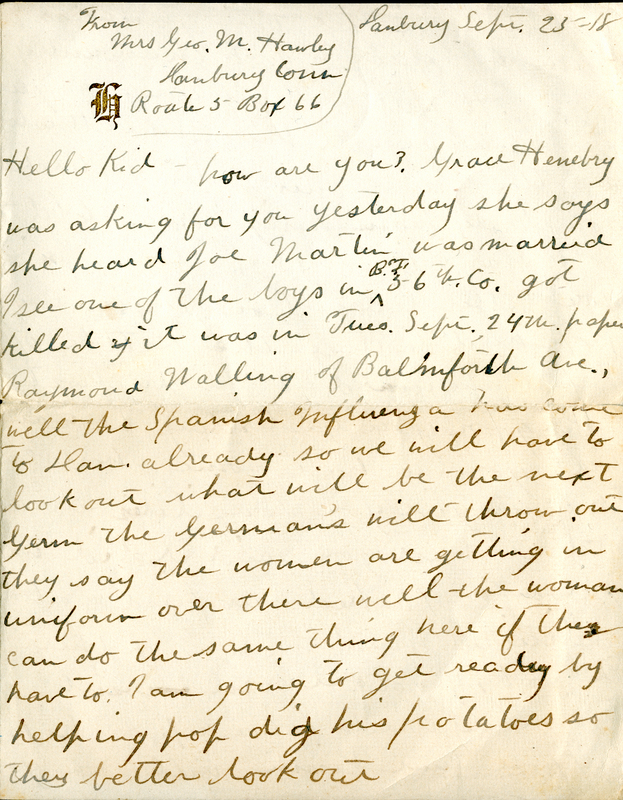 From
Mrs Geo. M. Hawley
Danbury Conn
Route 5 Box 66
H
Danbury Sept. 25-18
Hello Kid - how are you? Grace Henebry
was asking for you yesterday she says
she heard Joe Martin was married
I see one of the boys in B.F. 56th. Co. got
killed & it was in Tues. Sept. 24th. paper
Raymond Walling of Balmforth Ave.,
well the Spanish Influenza has come
to Dan. already so we will have to
look out what will be the next
Germ the Germans will throw out
they say the women are getting in
uniform over there well the woman
can do the same thing here if they
have to. I am going to get ready by
helping pop dig his potatoes so
they better look out